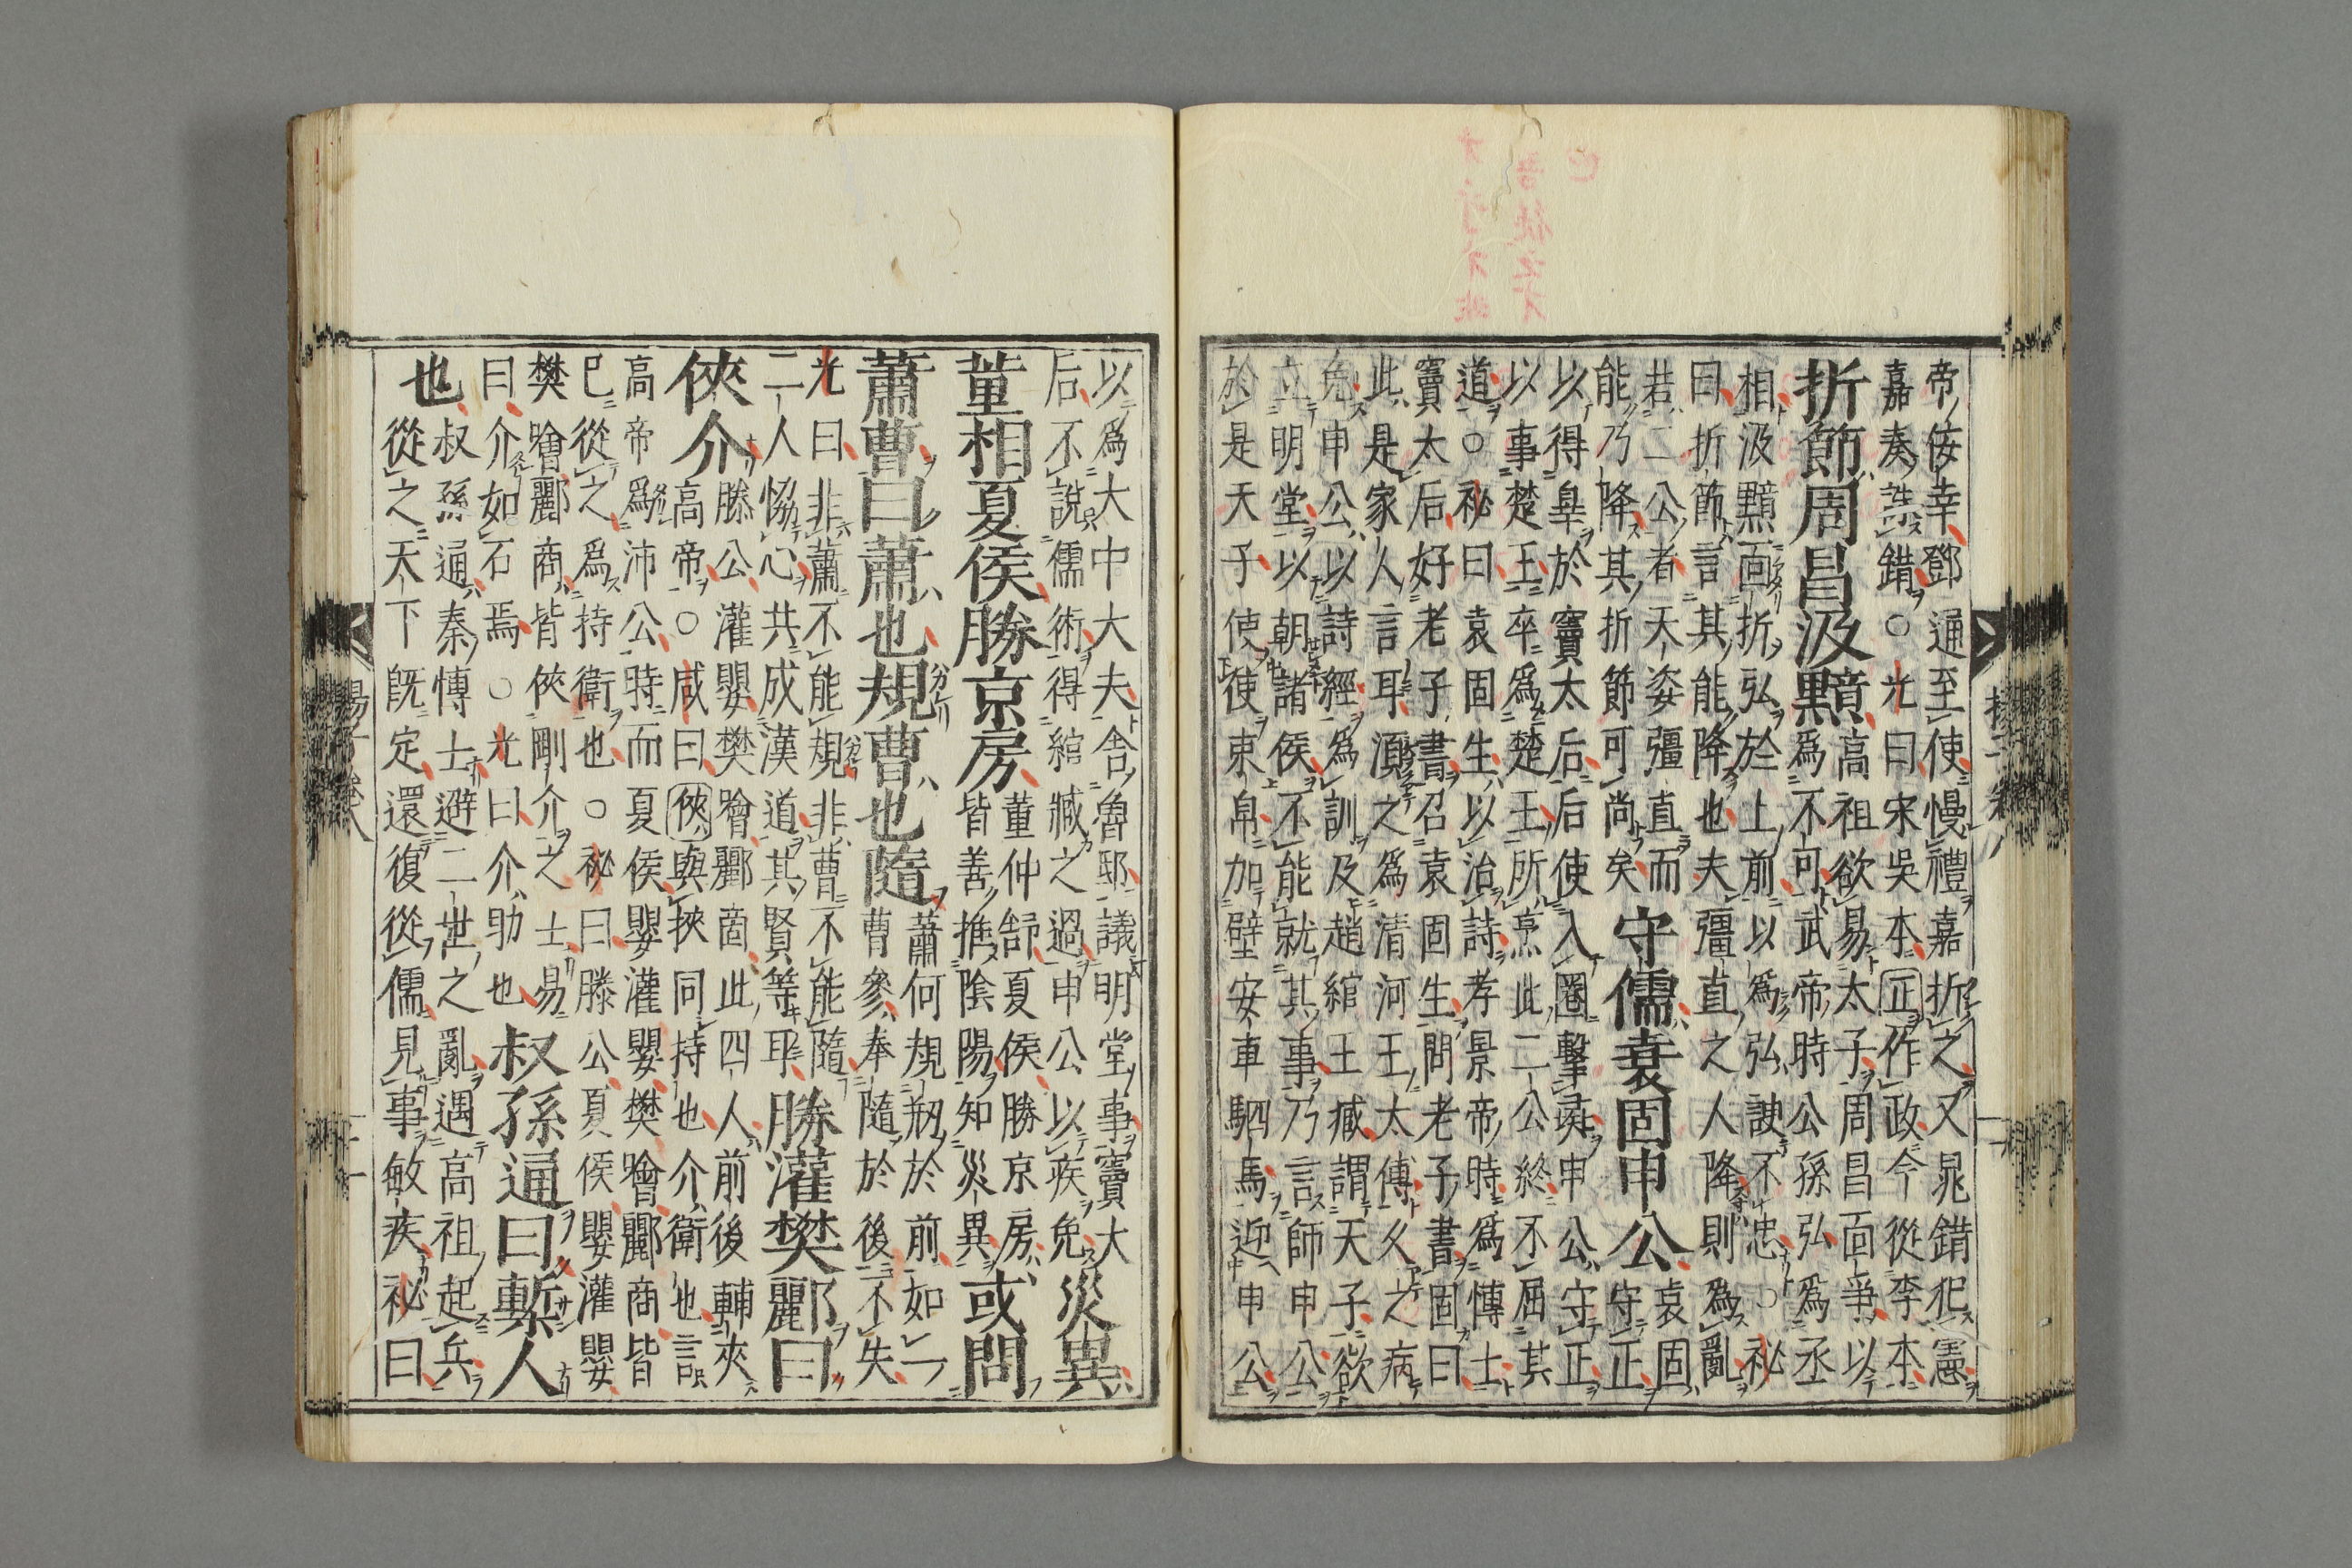 帝佞幸鄧通至使慢禮嘉折之又晁錯犯憲
嘉奏誅錯○光曰宋吳本正作政今從李本
折節周昌汲黯高祖欲易太子周昌面爭以
爲不可武帝時公孫弘爲丞
相汲黯面折弘於上前以爲弘詖不忠○祕
曰折節言其能降也夫彊直之人降則爲亂
若二公者天姿彊直而
能乃降其折節可尚矣守儒袁固申公袁固
守正
以得辠於竇太后后使入圈擊彘申公守正
以事楚王卒爲楚王所烹此二公終不屈其
道○祕曰袁固生以治詩孝景帝時爲博士
竇太后好老子書召袁固生問老子書固曰
此是家人言耳湏之爲清河王太傅久之病
免申公以詩經爲訓及趙綰王臧謂天子欲
立明堂以朝諸侯不能就其事乃言師申公
於是天子使使束帛加璧安車駟馬迎申公
以爲大中大夫舍魯邸議明堂事竇大
后不說儒術得綰臧之過申公以疾免災異
董相夏侯勝京房董仲舒夏侯勝京房
皆善推陰陽知災異或問
蕭曹曰蕭也規曹也隨蕭何規刱於前如一
曹參奉隨於後不失
光曰非蕭不能規非曹不能隨
二人恊心共成漢道其賢等耳滕灌樊酈曰
俠介滕公灌嬰樊噲酈啇此四人前後輔夾
高帝○咸曰俠與挾同持也介衛也言
高帝爲沛公時而夏侯嬰灌嬰樊噲酈商皆
已從之爲持衛也○祕曰滕公夏侯嬰灌嬰
樊噲酈商皆俠剛介之士易
曰介如石焉○光曰介助也叔孫通曰槧人
也叔孫通秦博士避二世之亂遇高祖起兵
從之天下既定還復從儒見事敏疾祕曰